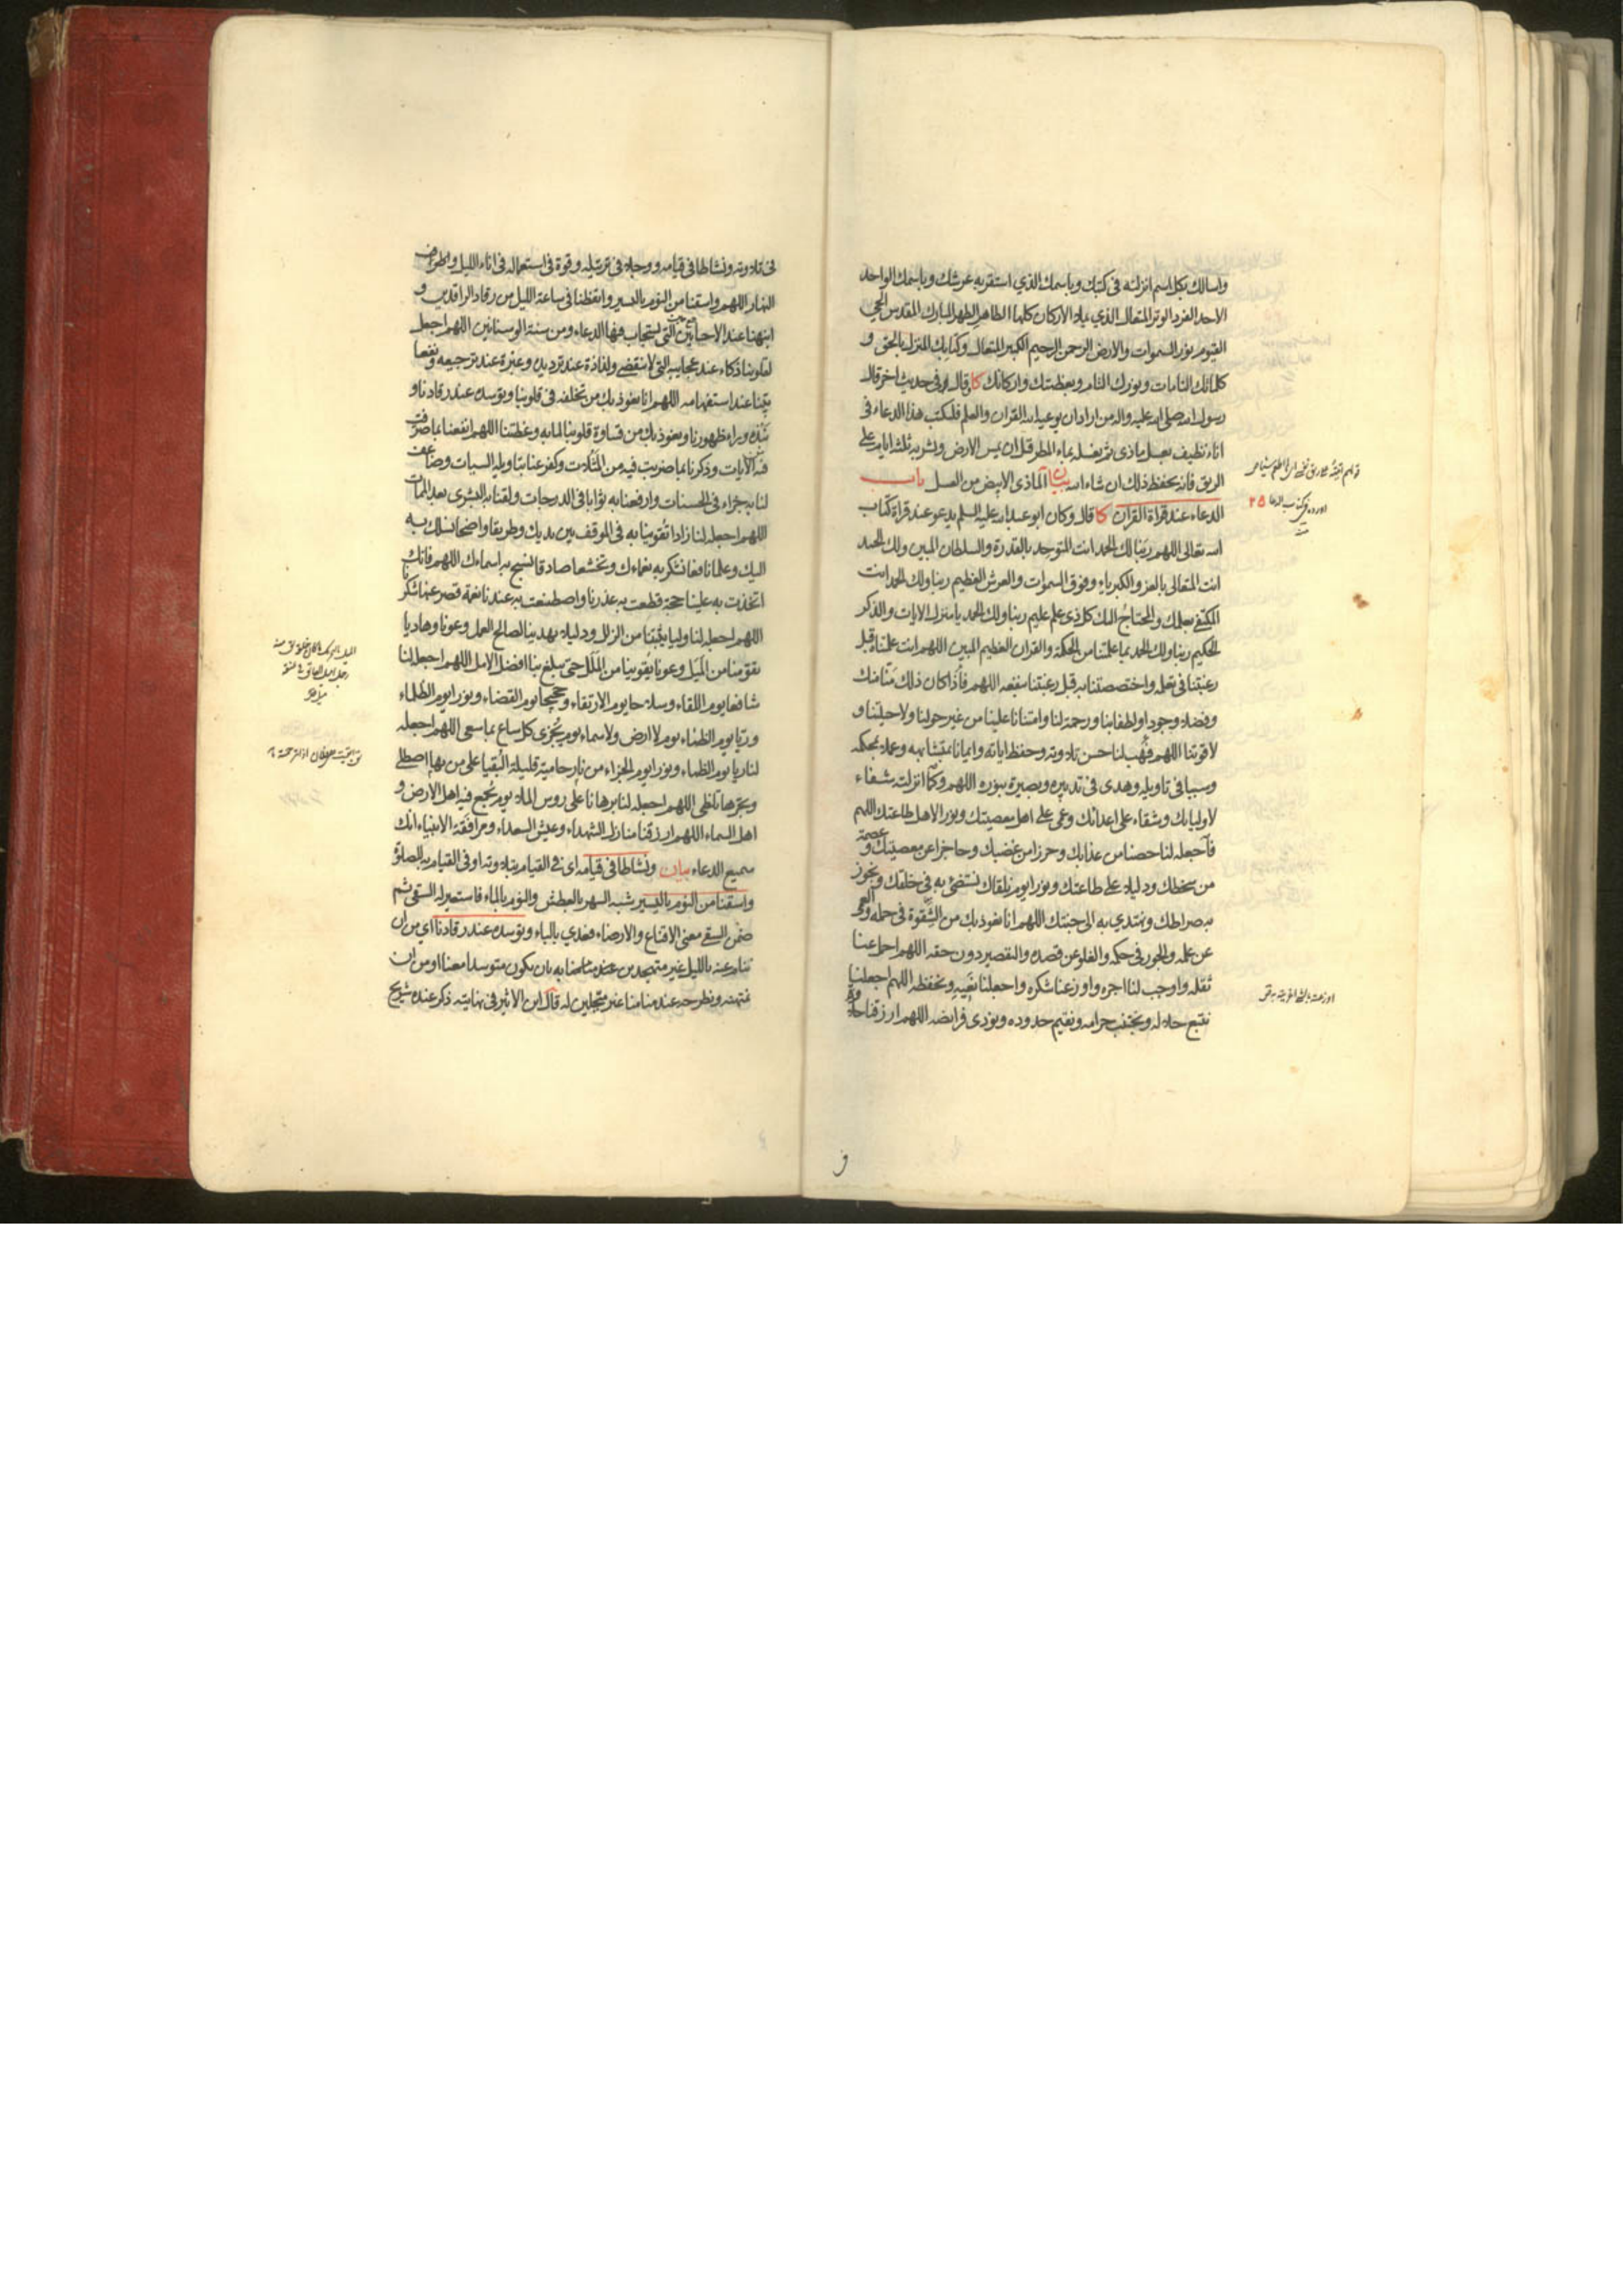 واسالك بكل اسم انزلته فى كتبك وباسمك الذي استقر به عرشك وباسمك الواحد
الاحد الفرد الوتر المتعال الذي يملاء الاركان كلها الطاهر الطهر المبارك المقدس الحي
القيوم نور السموات والارض الرحمن الرحيم الكبير المتعال وكتابك المنزل بالحق و
كلماتك التامات ونورك التام وبعظمتك واركانك كا قال وفى حديث اخر قال
رسول الله صلى الله عليه واله من اراد ان يوعيه الله القران والعلم فليكتب هذا الدعاء فى
اناء نظيف بعسل ماذى ثم يغسله بماء المطر قبل ان يمس الارض ويشربه ثلثة ايام على
الريق فانه يحفظ ذلك ان شاء الله بيان الماذى الابيض من العسل باب
الدعاء عند قراة القران كا قال وكان ابو عبد الله عليه السلم يدعو عند قراة كتاب
الله تعالى اللهم ربنا لك الحمد انت المتوحد بالقدرة والسلطان المبين ولك الحمد
انت المتعالى بالعز والكبرياء وفوق السموات والعرش العظيم ربنا ولك الحمد انت
المكتفى بعلمك والمحتاج اليك كل ذى علم عليم ربنا ولك الحمد يا منزل الايات والذكر
الحكيم ربنا ولك الحمد بما علمتنا من الحكمة والقران العظيم المبين اللهم انت علمتناه قبل
رغبتنا فى تعلمه واختصصتنا به قبل رغبتنا بنفعه اللهم فاذا كان ذلك منا منك
وفضلا وجودا ولطفا بنا ورحمة لنا وامتنانا علينا من غير حولنا ولا حيلتنا و
لا قوتنا اللهم فهب لنا حسن تلاوته وحفظ اياته وايمانا بمتشابهه وعملا بمحكمه
وسببا فى تاويله وهدى فى تدبيره وبصيرة بنوره اللهم وكما انزلته شفاء
لاوليائك وشقاء على اعدائك وعمى على اهل معصيتك ونورا لاهل طاعتك اللهم
فاجعله لنا حصنا من عذابك وحرزا من غضبك وحاجزا عن معصيتك وعصمة
من سخطك ودليلا على طاعتك ونورا يوم نلقاك نستضئ به فى خلقك ونجوز
به صراطك ونهتدي به الى جنتك اللهم انا نعوذ بك من الشقوة فى حمله والعمى
عن علمه والجور فى حكمه والغلو عن قصده والتقصير دون حقه اللهم احمل عنا
ثقله واوجب لنا اجره واوزعنا شكره واجعلنا نعيه ونحفظه اللهم اجعلنا
نتبع حلاله ونجتنب حرامه ونقيم حدوده ونؤدى فرايضه اللهم ارزقنا حلاوة
فى تلاوته ونشاطا فى قيامه ووجلا فى ترتيله وقوة فى استعماله فى اناء الليل واطراف
النهار اللهم واسقنا من النوم باليسير وايقظنا فى ساعة الليل من رقاد الراقدين و
انبهنا عند الاحايين التى يستجاب فيها الدعاء ومن سنة الوسنانين اللهم اجعل
لقلوبنا ذكاء عند عجايبه التى لا تنقضى ولذاذة عند ترديده وعبرة عند ترجيعه ونفعا
بينا عند استفهامه اللهم انا نعوذ بك من تخلفه فى قلوبنا وتوسده عند رقادنا و
نبذه وراء ظهورنا ونعوذ بك من قساوة قلوبنا لما به وعظتنا اللهم انفعنا بما صرفت
فيه الايات وذكرنا بما ضربت فيه من المثلات وكفر عنا بتاويله السيات وضاعف
لنا به جزاء فى الحسنات وارفعنا به ثوابا فى الدرجات ولقنا به البشرى بعد الممات
اللهم اجعله لنا زادا تقوينا به فى الموقف بين يديك وطريقا واضحا نسلك به
اليك وعلما نافعا نشكر به نعماءك وتخشعا صادقا نسبح به اسماءك اللهم فانك
اتخذت به علينا حجة قطعت به عذرنا واصطنعت به عندنا نعمة قصر عنها شكرنا
اللهم اجعله لنا وليا يثبتنا من الزلل ودليلا يهدينا لصالح العمل وعونا وهاديا
يقومنا من الميل وعونا يقوينا من الملل حتى يبلغ بنا افضل الامل اللهم اجعله لنا
شافعا يوم اللقاء وسلاحا يوم الارتقاء وحجيجا يوم القضاء ونورا يوم الظلماء
وريا يوم الظماء يوم لا ارض ولا سماء يوم يجزى كل ساع بما سعى اللهم اجعله
لنا ريا يوم الظماء ونورا يوم الجزاء من نار حامية قليلة البقيا على من بها اصطلى
وبحرها تلظى اللهم اجعله لنا برهانا على روس الملا يوم يجمع فيه اهل الارض و
اهل السماء اللهم ارزقنا منازل الشهداء وعيش السعداء ومرافقة الانبياء انك
سميع الدعاء بيان ونشاطا فى قيامه اى فى القيام بتلاوته او فى القيام به للصلوة
واسقنا من النوم باليسير شبه السهر بالعطش والنوم بالماء فاستعير له السقى ثم
ضمن السقى معنى الاقناع والارضاء فعدي بالباء وتوسده عند رقادنا اي من ان
ننام عنه بالليل غير متهجدين عند منامنا به بان يكون متوسدا معنا او من ان
نمتهنه ونطرحه عند منامنا غير مبجلين له قال ابن الاثير فى نهايته ذكر عنده شريح